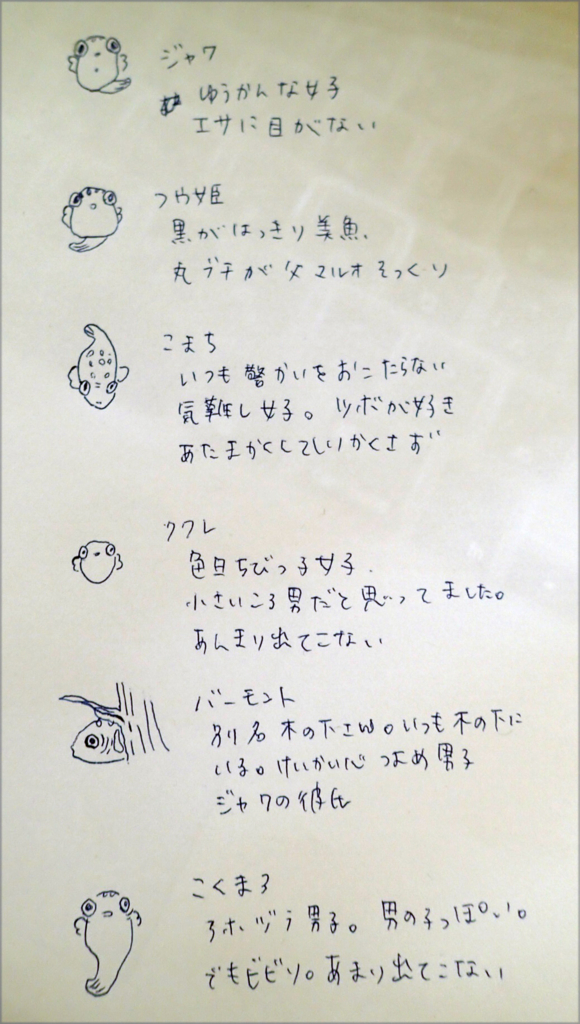 ジャワ
ゆうかんな女子
エサに目がない
つや姫
黒がはっきり美魚、
丸ブチが父マルオそっくり
こまち
いつも警かいをおこたらない
気難し女子。ツボが好き
あたまかくしてしりかくさず
ククレ
色白ちびっ子女子.
小さいころ男だと思ってました。
あんまり出てこない
バーモント
別名 木の下さん。いつも木の下に
いる。けいかい心 つよめ男子
ジャワの彼氏
こくまろ
アホヅラ男子。男の子っぽい。
でもビビリ。あまり出てこない